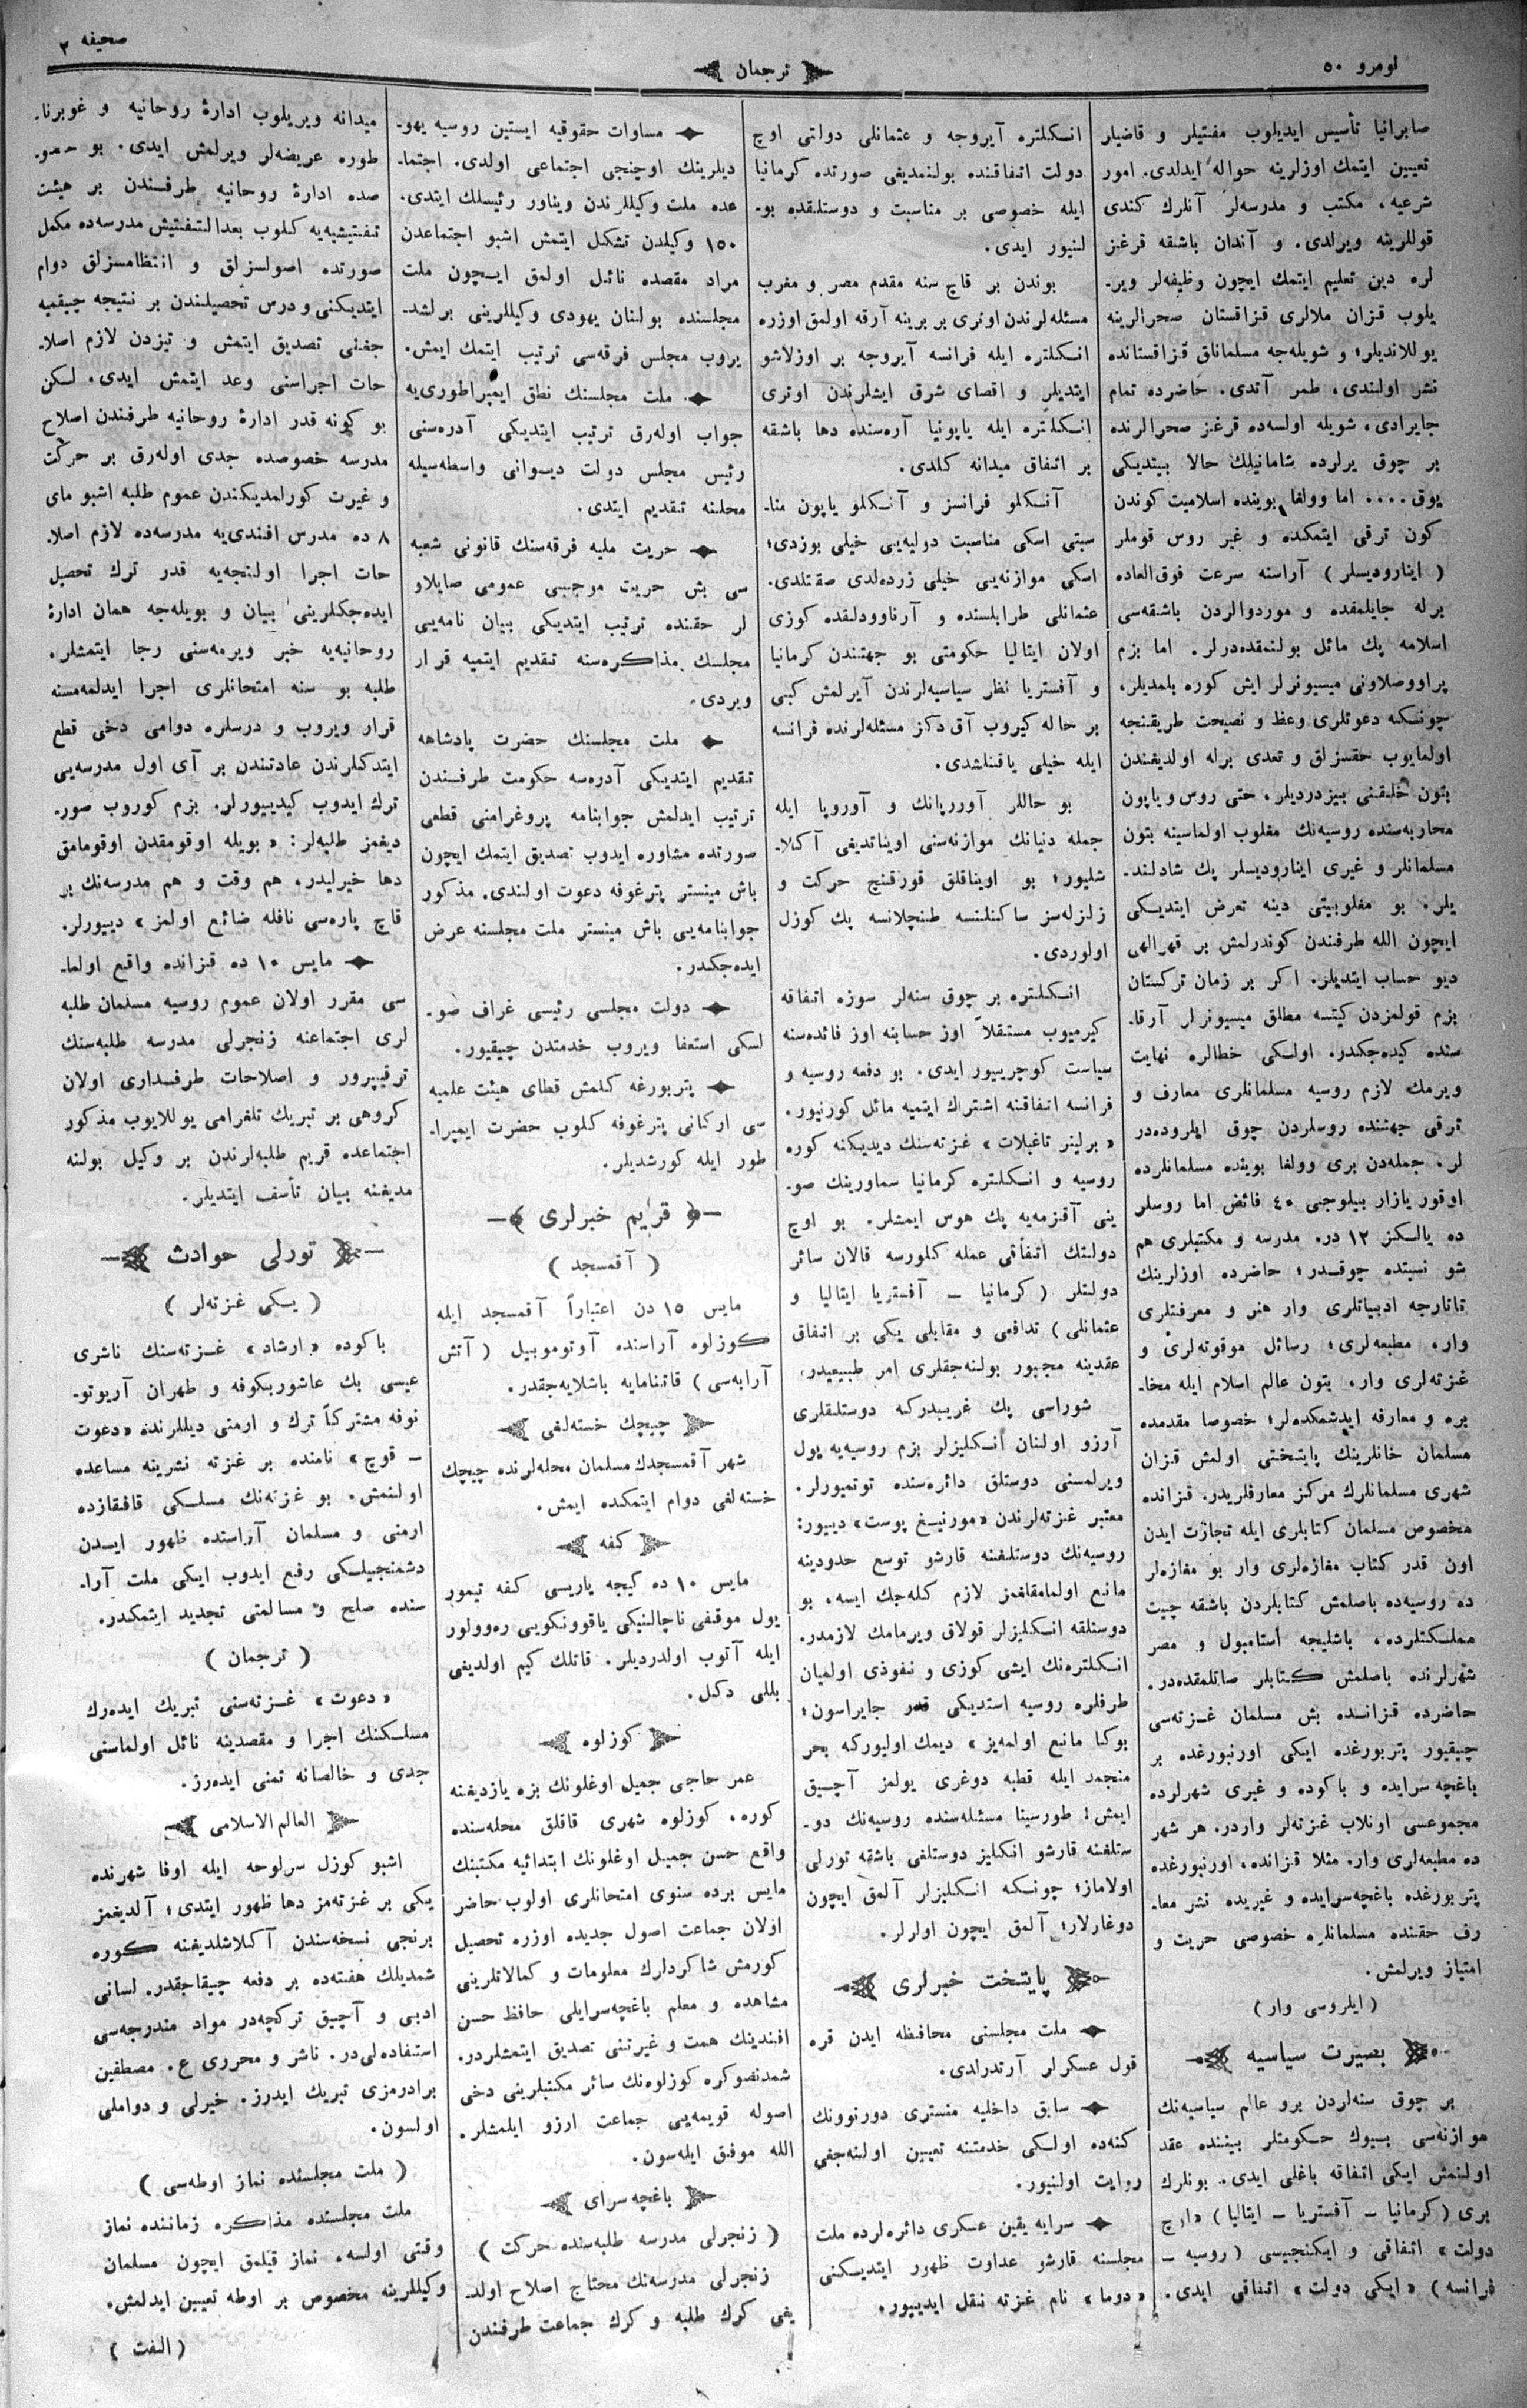 نومرو ٥٠
ترجمان
صحیفه ٢
صابرانیا تأسیس ایدیلوب مفتیلر و قاضیلر
تعیین ایتمك اوزلرینه حواله ایدلدی. امور
شرعیه، مکتب و مدرسه‌لر آنلرك کندی
قوللرینه ویرلدی. و آندان باشقه قرغز
لره دین تعلیم ایتمك ایچون وظیفه‌لر ویر-
یلوب قزان ملالری قزاقستان صحرالرینه
یوللاندیلر؛ و شویله‌جه مسلمانلق قزاقستانده
نشر اولندی، طمر آتدی. حاضرده تمام
جایرادی، شویله اولسه‌ده قرغز صحرالرنده
بر چوق یرلرده شامانیلك حالا بیتدیکی
یوق.... اما وولغا بوینده اسلامیت کوندن
کون ترقی ایتمکده و غیر روس قوملر
( اینارودیسلر ) آراسنه سرعت فوق‌العاده
برله جایلمقده و موردوالردن باشقه‌سی
اسلامه پك مائل بولنمقده‌درلر. اما بزم
پراووصلاونی میسیونرلر ایش کوره بلمدیلر،
چونکه دعوتلری وعظ و نصیحت طریقنجه
اولمایوب حقسزلق و تعدی برله اولدیغندن
بتون خلقنی بیزدردیلر، حتی روس و یاپون
محاربه‌سنده روسیه‌نك مغلوب اولماسینه بتون
مسلمانلر و غیری اینارودیسلر پك شادلند-
یلر. بو مغلوبیتی دینه تعرض ایتدیکی
ایچون الله طرفندن کوندرلمش بر قهرالهی
دیو حساب ایتدیلر. اکر بر زمان ترکستان
بزم قولمزدن کیتسه مطلق میسیونرلر آرقا-
سنده کیده‌جکدر. اولکی خطالره نهایت
ویرمك لازم روسیه مسلمانلری معارف و
ترقی جهتنده روسلردن چوق ایلروده‌در
لر. جمله‌دن بری وولغا بوینده مسلمانلرده
اوقور یازار بیلوجی ٤٠ فائض اما روسلر
ده یالکز ١٢ در. مدرسه و مکتبلری هم
شو نسبتده چوقدر؛ حاضرده اوزلرینك
تاتارجه ادبیاتلری وار هنر و معرفتلری
وار، مطبعه‌لری؛ رسائل موقوته‌لری و
غزته‌لری وار. بتون عالم اسلام ایله مخا-
بره و معارفه ایدشمکده‌لر؛ خصوصا مقدمده
مسلمان خانلرینك پایتختی اولمش قزان
شهری مسلمانلرك مرکز معارفلریدر. قزانده
مخصوص مسلمان کتابلری ایله تجارت ایدن
اون قدر کتاب مغازه‌لری وار بو مغازه‌لر
ده روسیه‌ده باصلمش کتابلردن باشقه چیت
مملکتلرده، باشلیجه استامبول و مصر
شهرلرنده باصلمش کتابلر صاتلمقده‌در.
حاضرده قزانده بش مسلمان غزته‌سی
چیقیور پتربورغده ایکی اورنبورغده بر
باغچه سرایده و باکوده و غیری شهرلرده
مجموعسی اونلاب غزته‌لر واردر. هر شهر
ده مطبعه‌لری وار. مثلا قزانده، اورنبورغده
پتربورغده باغچه‌سرایده و غیریده نشر معا-
رف حقنده مسلمانلره خصوصی حریت و
امتیاز ویرلمش.
( ایلروسی وار )
بصیرت سیاسیه
بر چوق سنه‌لردن برو عالم سیاسیه‌نك
موازنه‌سی بیوك حکومتلر بیننده عقد
اولنمش ایکی اتفاقه باغلی ایدی. بونلرك
بری ( کرمانیا – آفستریا – ایتالیا ) «اوچ
دولت» اتفاقی و ایکنجیسی ( روسیه –
فرانسه ) «ایکی دولت» اتفاقی ایدی.
انکلتره آیروجه و عثمانلی دولتی اوچ
دولت اتفاقنده بولنمدیغی صورتده کرمانیا
ایله خصوصی بر مناسبت و دوستلقده بو-
لنیور ایدی.
بوندن بر قاچ سنه مقدم مصر و مغرب
مسئله‌لرندن اوتری بر برینه آرقه اولمق اوزره
انکلتره ایله فرانسه آیروجه بر اوزلاشو
ایتدیلر و اقصای شرق ایشلرندن اوتری
انکلتره ایله یاپونیا آره‌سنده دها باشقه
بر اتفاق میدانه کلدی.
آنکلو فرانسز و آنکلو یاپون منا-
سبتی اسکی مناسبت دولیه‌یی خیلی بوزدی؛
اسکی موازنه‌یی خیلی زرده‌لدی صقتلدی.
عثمانلی طرابلسنده و آرناوودلقده کوزی
اولان ایتالیا حکومتی بو جهتندن کرمانیا
و آفستریا نظر سیاسیه‌لرندن آیرلمش کبی
بر حاله کیروب آق دکز مسئله‌لرنده فرانسه
ایله خیلی یاقنلشدی.
بو حاللر آوروپانك و آوروپا ایله
جمله دنیانك موازنه‌سنی اویناتدیغی آکلا-
شلیور؛ بو اویناقلق قورقنچ حرکت و
زلزله‌سز ساکنلنسه طنچلانسه پك کوزل
اولوردی.
انکلتره بر چوق سنه‌لر سوزه اتفاقه
کیرمیوب مستقلاً اوز حسابنه اوز فائده‌سنه
سیاست کوچرییور ایدی. بو دفعه روسیه و
فرانسه اتفاقنه اشتراك ایتمیه مائل کورنیور.
«برلینر تاغبلات» غزته‌سنك دیدیکنه کوره
روسیه و انکلتره کرمانیا سماورینك صو-
ینی آقزمه‌یه پك هوس ایمشلر. بو اوچ
دولتك اتفاقی عمله کلورسه قالان سائر
دولتلر ( کرمانیا – آفستریا ایتالیا و
عثمانلی ) تدافعی و مقابلی یکی بر اتفاق
عقدینه مجبور بولنه‌جقلری امر طبیعیدر.
شوراسی پك غریبدرکه دوستلقلری
آرزو اولنان انکلیزلر بزم روسیه‌یه یول
ویرلمسنی دوستلق دائره‌سنده توتمیورلر.
معتبر غزته‌لرندن «مورنیغ پوست» دییور:
روسیه‌نك دوستلغنه قارشو توسع حدودینه
مانع اولمامقلغمز لازم کله‌جك ایسه، بو
دوستلقه انکلیزلر قولاق ویرمامك لازمدر.
انکلتره‌نك ایشی کوزی و نفوذی اولمیان
طرفلره روسیه استدیکی قدر جایراسون؛
بوکا مانع اولمه‌یز» دیمك اولیورکه بحر
منجمد ایله قطبه دوغری یولمز آچیق
ایمش! طورسینا مسئله‌سنده روسیه‌نك دو-
ستلغنه قارشو انکلیز دوستلغی باشقه تورلی
اولاماز؛ چونکه انکلیزلر آلمق ایچون
دوغارلار؛ آلمق ایچون اولرلر.
پایتخت خبرلری
ملت مجلسنی محافظه ایدن قره
قول عسکرلر آرتدرلدی.
سابق داخلیه منستری دورنوونك
کنه‌ده اولکی خدمتنه تعیین اولنه‌جغی
روایت اولنیور.
سرایه یقین عسکری دائره‌لرده ملت
مجلسنه قارشو عداوت ظهور ایتدیکنی
«دوما» نام غزته نقل ایدییور.
مساوات حقوقیه ایستین روسیه یهو-
دیلرینك اوچنجی اجتماعی اولدی. اجتما-
عده ملت وکیللرندن ویناور رئیسلك ایتدی.
١٥٠ وکیلدن تشکل ایتمش اشبو اجتماعدن
مراد مقصده نائل اولمق ایچون ملت
مجلسنده بولنان یهودی وکیللرینی برلشد-
یروب مجلس فرقه‌سی ترتیب ایتمك ایمش.
ملت مجلسنك نطق ایمپراطوری‌یه
جواب اوله‌رق ترتیب ایتدیکی آدره‌سنی
رئیس مجلس دولت دیوانی واسطه‌سیله
محلنه تقدیم ایتدی.
حریت ملیه فرقه‌سنك قانونی شعبه
سی بش حریت موجبی عمومی صایلاو
لر حقنده ترتیب ایتدیکی بیان نامه‌یی
مجلسك مذاکره‌سنه تقدیم ایتمیه قرار
ویردی.
ملت مجلسنك حضرت پادشاهه
تقدیم ایتدیکی آدره‌سه حکومت طرفندن
ترتیب ایدلمش جوابنامه پروغرامنی قطعی
صورتده مشاوره ایدوب تصدیق ایتمك ایچون
باش مینستر پترغوفه دعوت اولندی. مذکور
جوابنامه‌یی باش مینستر ملت مجلسنه عرض
ایده‌جکدر.
دولت مجلسی رئیسی غراف صو-
لسکی استعفا ویروب خدمتدن چیقیور.
پتربورغه کلمش قطای هیئت علمیه
سی ارکانی پترغوفه کلوب حضرت ایمپرا-
طور ایله کورشدیلر.
قریم خبرلری
( آقمسجد )
مایس ١٥ دن اعتباراً آقمسجد ایله
کوزلوه آراسنده آوتوموبیل ( آتش
آرابه‌سی ) قاتنامایه باشلایه‌جقدر.
چیچك خسته‌لغی
شهر آقمسجدك مسلمان محله‌لرنده چیچك
خسته‌لغی دوام ایتمکده ایمش.
کفه
مایس ١٠ ده کیجه یاریسی کفه تیمور
یول موقفی ناچالنیکی یاقوونکویی ره‌وولور
ایله آتوب اولدردیلر. قاتلك کیم اولدیغی
بللی دکل.
کوزلوه
عمر حاجی جمیل اوغلونك بزه یازدیغنه
کوره، کوزلوه شهری قاقلق محله‌سنده
واقع حسن جمیل اوغلونك ابتدائیه مکتبنك
مایس برده سنوی امتحانلری اولوب حاضر
اولان جماعت اصول جدیده اوزره تحصیل
کورمش شاکردلرك معلومات و کمالاتلرینی
مشاهده و معلم باغچه‌سرایلی حافظ حسن
افندینك همت و غیرتنی تصدیق ایتمشلردر.
شمدنصوکره کوزلوه‌نك سائر مکتبلرینی دخی
اصوله قویمه‌یی جماعت ارزو ایلمشلر.
الله موفق ایله‌سون.
باغچه سرای
( زنجرلی مدرسه طلبه‌سنده حرکت )
زنجرلی مدرسه‌نك محتاج اصلاح اولد-
یغی کرك طلبه و کرك جماعت طرفندن
میدانه ویریلوب ادارهٔ روحانیه و غوبرنا-
طوره عریضه‌لر ویرلمش ایدی. بو خصو-
صده ادارهٔ روحانیه طرفندن بر هیئت
تفتیشیه‌یه کلوب بعدالتفتیش مدرسه‌ده مکمل
صورتده اصولسزلق و انتظامسزلق دوام
ایتدیکنی و درس تحصیلندن بر نتیجه چیقمیه
جغنی تصدیق ایتمش و تیزدن لازم اصلا-
حات اجراسنی وعد ایتمش ایدی. لکن
بو کونه قدر ادارهٔ روحانیه طرفندن اصلاح
مدرسه خصوصده جدی اوله‌رق بر حرکت
و غیرت کورلمدیکندن عموم طلبه اشبو مای
٨ ده مدرس افندی‌یه مدرسه‌ده لازم اصلا-
حات اجرا اولنجه‌یه قدر ترك تحصیل
ایده‌جکلرینی بیان و بویله‌جه همان ادارهٔ
روحانیه‌یه خبر ویرمه‌سنی رجا ایتمشلر.
طلبه بو سنه امتحانلری اجرا ایدلمه‌مسنه
قرار ویروب و درسلره دوامی دخی قطع
ایتدکلرندن عادتندن بر آی اول مدرسه‌یی
ترك ایدوب کیدییورلر. بزم کوروب صور-
دیغمز طلبه‌لر: «بویله اوقومقدن اوقومامق
دها خیرلیدر، هم وقت و هم مدرسه‌نك بر
قاچ پاره‌سی نافله ضائع اولمز» دییورلر.
مایس ١٠ ده قزانده واقع اولما-
سی مقرر اولان عموم روسیه مسلمان طلبه
لری اجتماعنه زنجرلی مدرسه طلبه‌سنك
ترقیپرور و اصلاحات طرفداری اولان
کروهی بر تبریك تلغرامی یوللایوب مذکور
اجتماعده قریم طلبه‌لرندن بر وکیل بولنه
مدیغنه بیان تأسف ایتدیلر.
تورلی حوادث
( یکی غزته‌لر )
باکوده «ارشاد» غزته‌سنك ناشری
عیسی بك عاشوربکوفه و طهران آریوتو-
نوفه مشترکاً ترك و ارمنی دیللرنده «دعوت
– قوچ» نامنده بر غزته نشرینه مساعده
اولنمش. بو غزته‌نك مسلکی قافقازده
ارمنی و مسلمان آراسنده ظهور ایدن
دشمنجیلکی رفع ایدوب ایکی ملت آرا-
سنده صلح و مسالمتی تجدید ایتمکدر.
( ترجمان )
«دعوت» غزته‌سنی تبریك ایده‌رك
مسلکنك اجرا و مقصدینه نائل اولماسنی
جدی و خالصانه تمنی ایده‌رز.
العالم الاسلامی
اشبو کوزل سرلوحه ایله اوفا شهرنده
یکی بر غزته‌مز دها ظهور ایتدی؛ آلدیغمز
برنجی نسخه‌سندن آکلاشلدیغنه کوره
شمدیلك هفته‌ده بر دفعه چیقاجقدر. لسانی
ادبی و آچیق ترکچه‌در مواد مندرجه‌سی
استفاده‌لی‌در. ناشر و محرری ع. مصطفین
برادرمزی تبریك ایدرز. خیرلی و دواملی
اولسون.
( ملت مجلسنده نماز اوطه‌سی )
ملت مجلسنده مذاکره زماننده نماز
وقتی اولسه، نماز قیلمق ایچون مسلمان
وکیللرینه مخصوص بر اوطه تعیین ایدلمش.
( الفت )